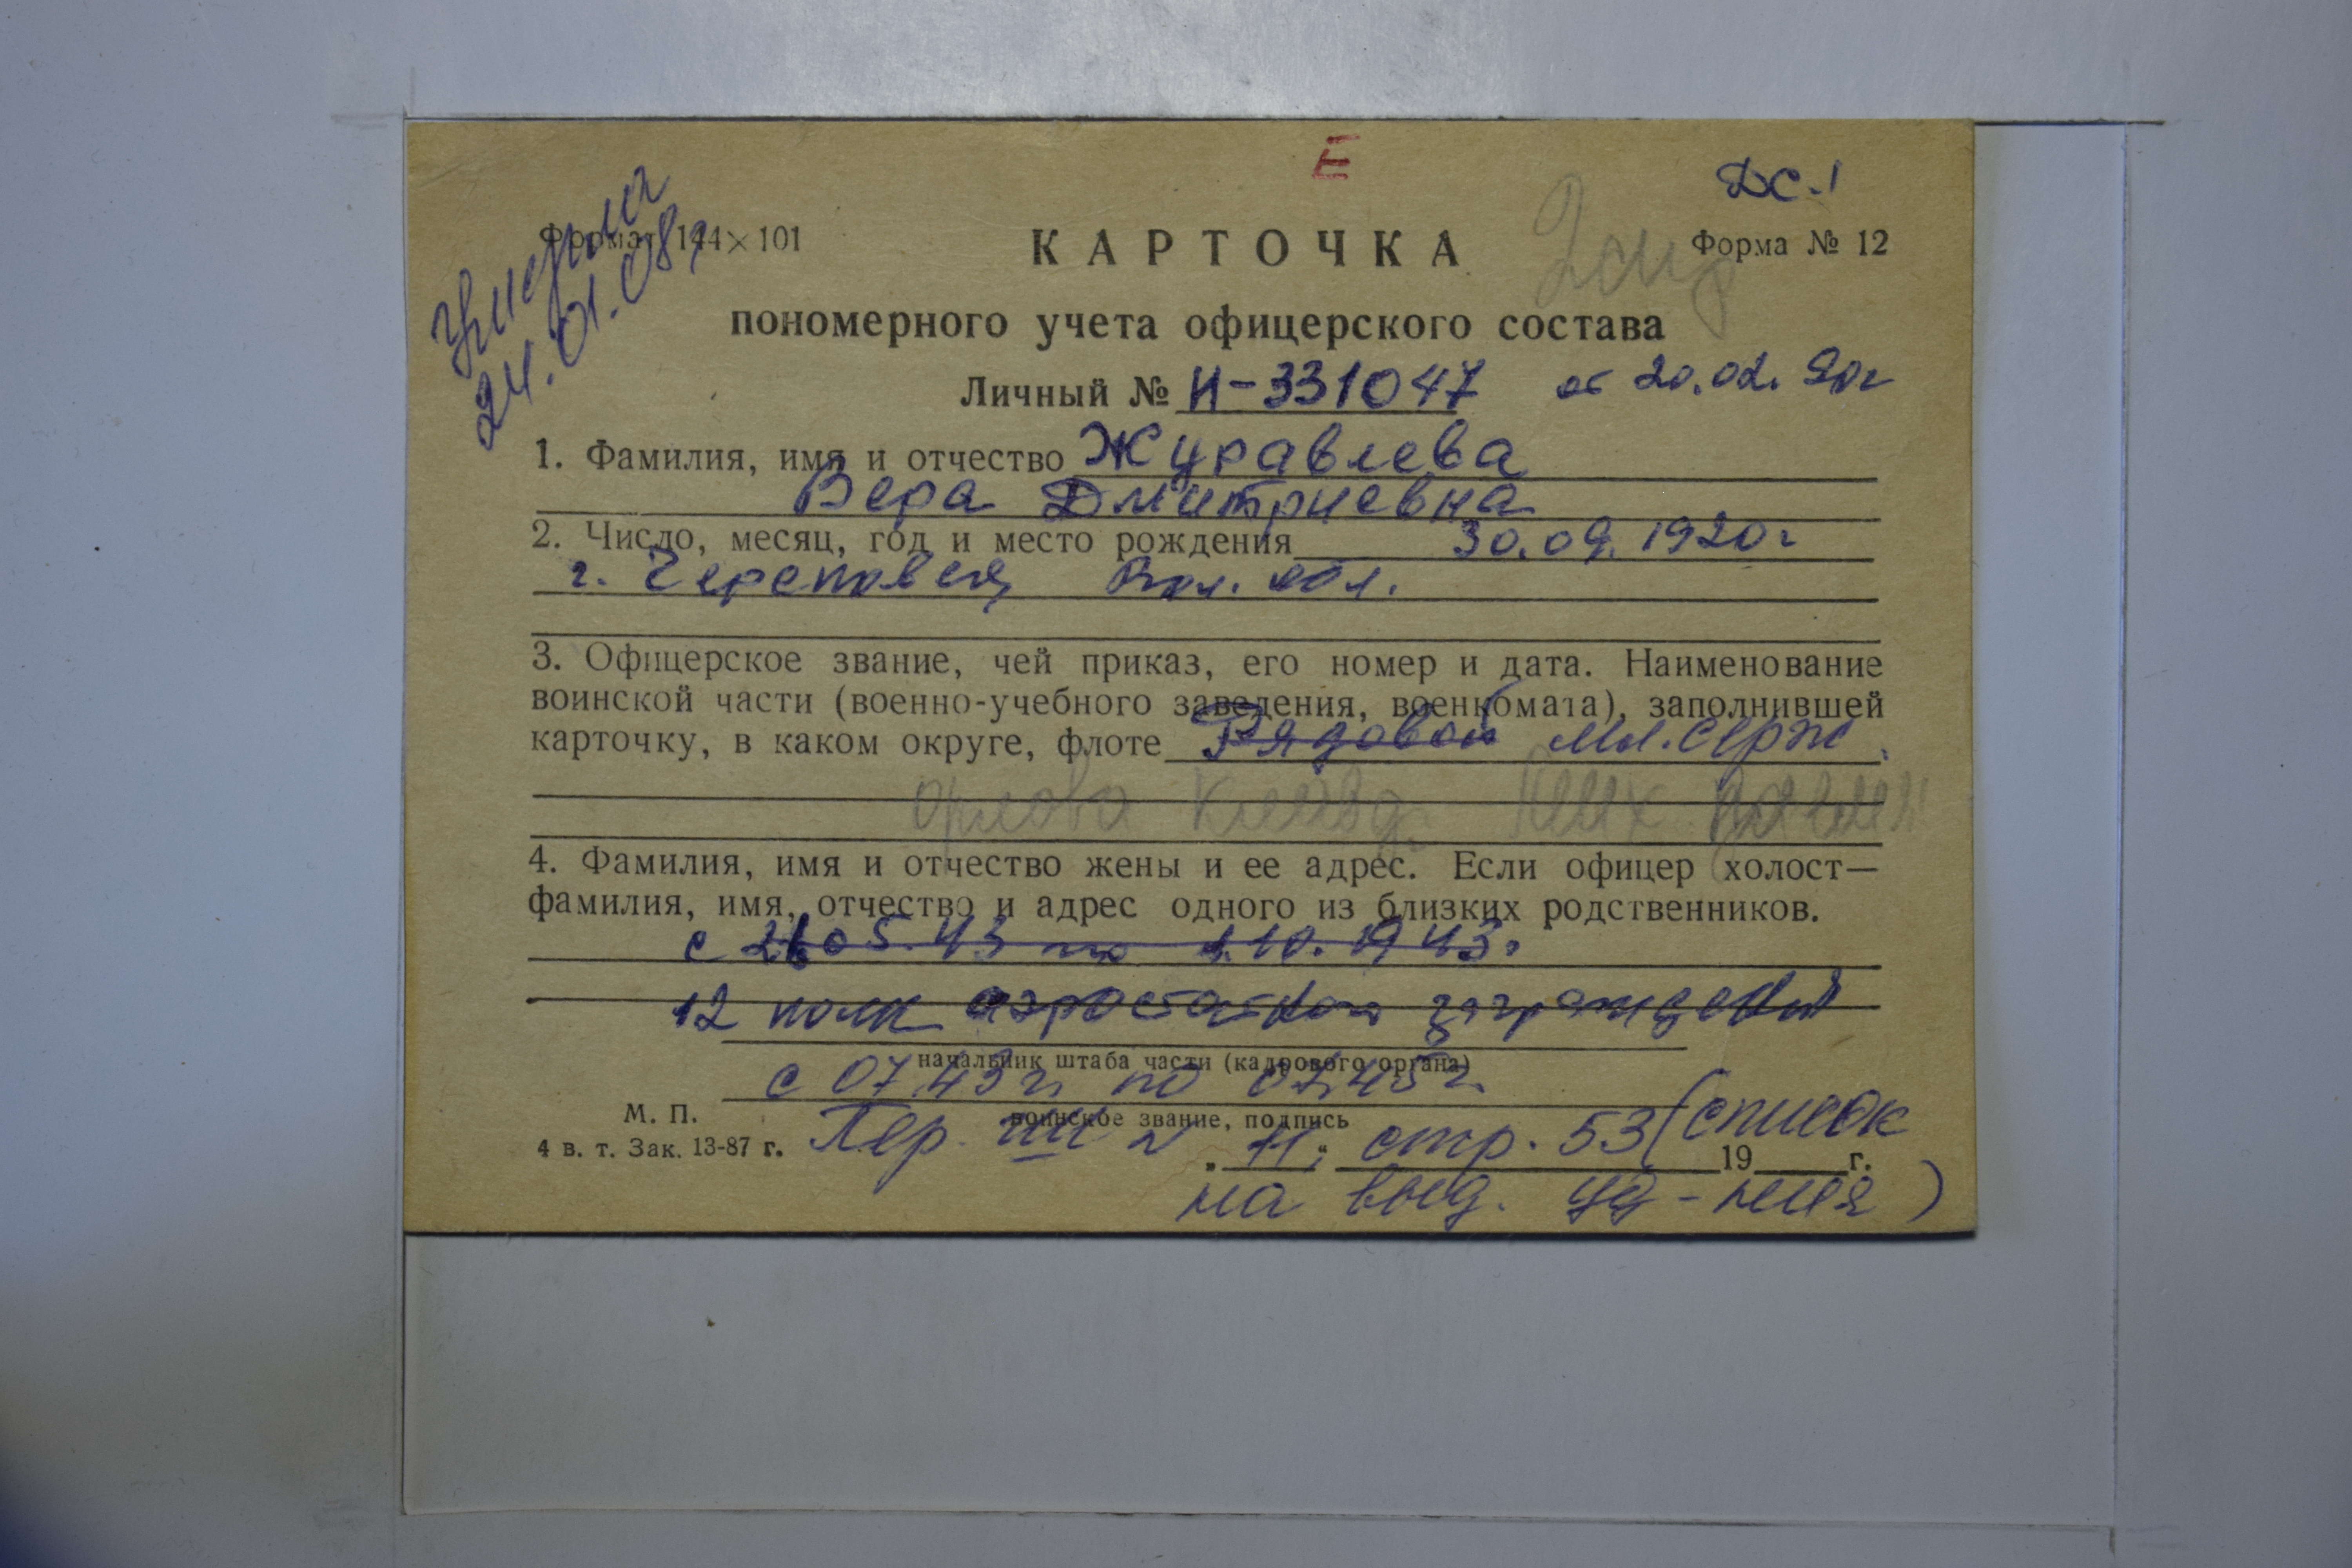 Е
ДС-1
Умерла
24.01.08г
Формат 144×101
КАРТОЧКА
Форма № 12
пономерного учета офицерского состава
Личный № И-331047 от 20.02.90г
1. Фамилия, имя и отчество Журавлева
Вера Дмитриевна
2. Число, месяц, год и место рождения 30.09.1920г
г. Череповец Вол. обл.
3. Офицерское звание, чей приказ, его номер и дата. Наименование
воинской части (военно-учебного заведения, военкомата), заполнившей
карточку, в каком округе, флоте Рядовой мл. серж.
Орлова
4. Фамилия, имя и отчество жены и ее адрес. Если офицер холост—
фамилия, имя, отчество и адрес одного из близких родственников.
с 05.43 по 1.10.1943г
12 полк аэростатов заграждений
начальник штаба части (кадрового органа)
с 07.43г. по 07.45г.
воинское звание, подпись
М. П.
4 в. т. Зак. 13-87 г.
Пер. № 11; стр. 53 (список
„ “ 19 г.
на выд. уд-ния)